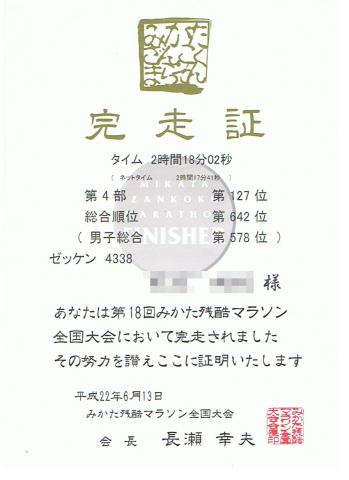 完走証
タイム 2時間18分02秒
( ネットタイム 2時間17分41秒 )
第4部 第127位
総合順位 第642位
( 男子総合 第578位 )
MIKATA
ZANKOKU
MARATHON
FINISHER
ゼッケン 4338
様
あなたは第18回みかた残酷マラソン
全国大会において完走されました
その努力を讃えここに証明いたします
平成22年6月13日
みかた残酷マラソン全国大会
会長 長瀬 幸夫